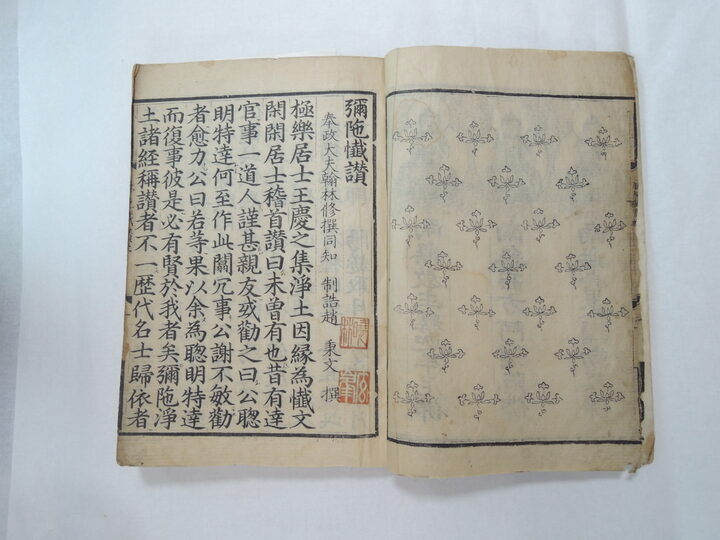 彌陁懺讃
奉政大夫翰林修撰同知 制誥趙 秉文 撰
極樂居士王慶之集淨土因縁為懺文
閑閑居士稽首讃曰未曽有也昔有達
官事一道人謹甚親友或勸之曰公聦
明特達何至作此闒冗事公謝不敏勸
者愈力公曰若等果以余為聦明特達
而復事彼是必有賢於我者矣彌陁淨
土諸経稱讃者不一歴代名士歸依者